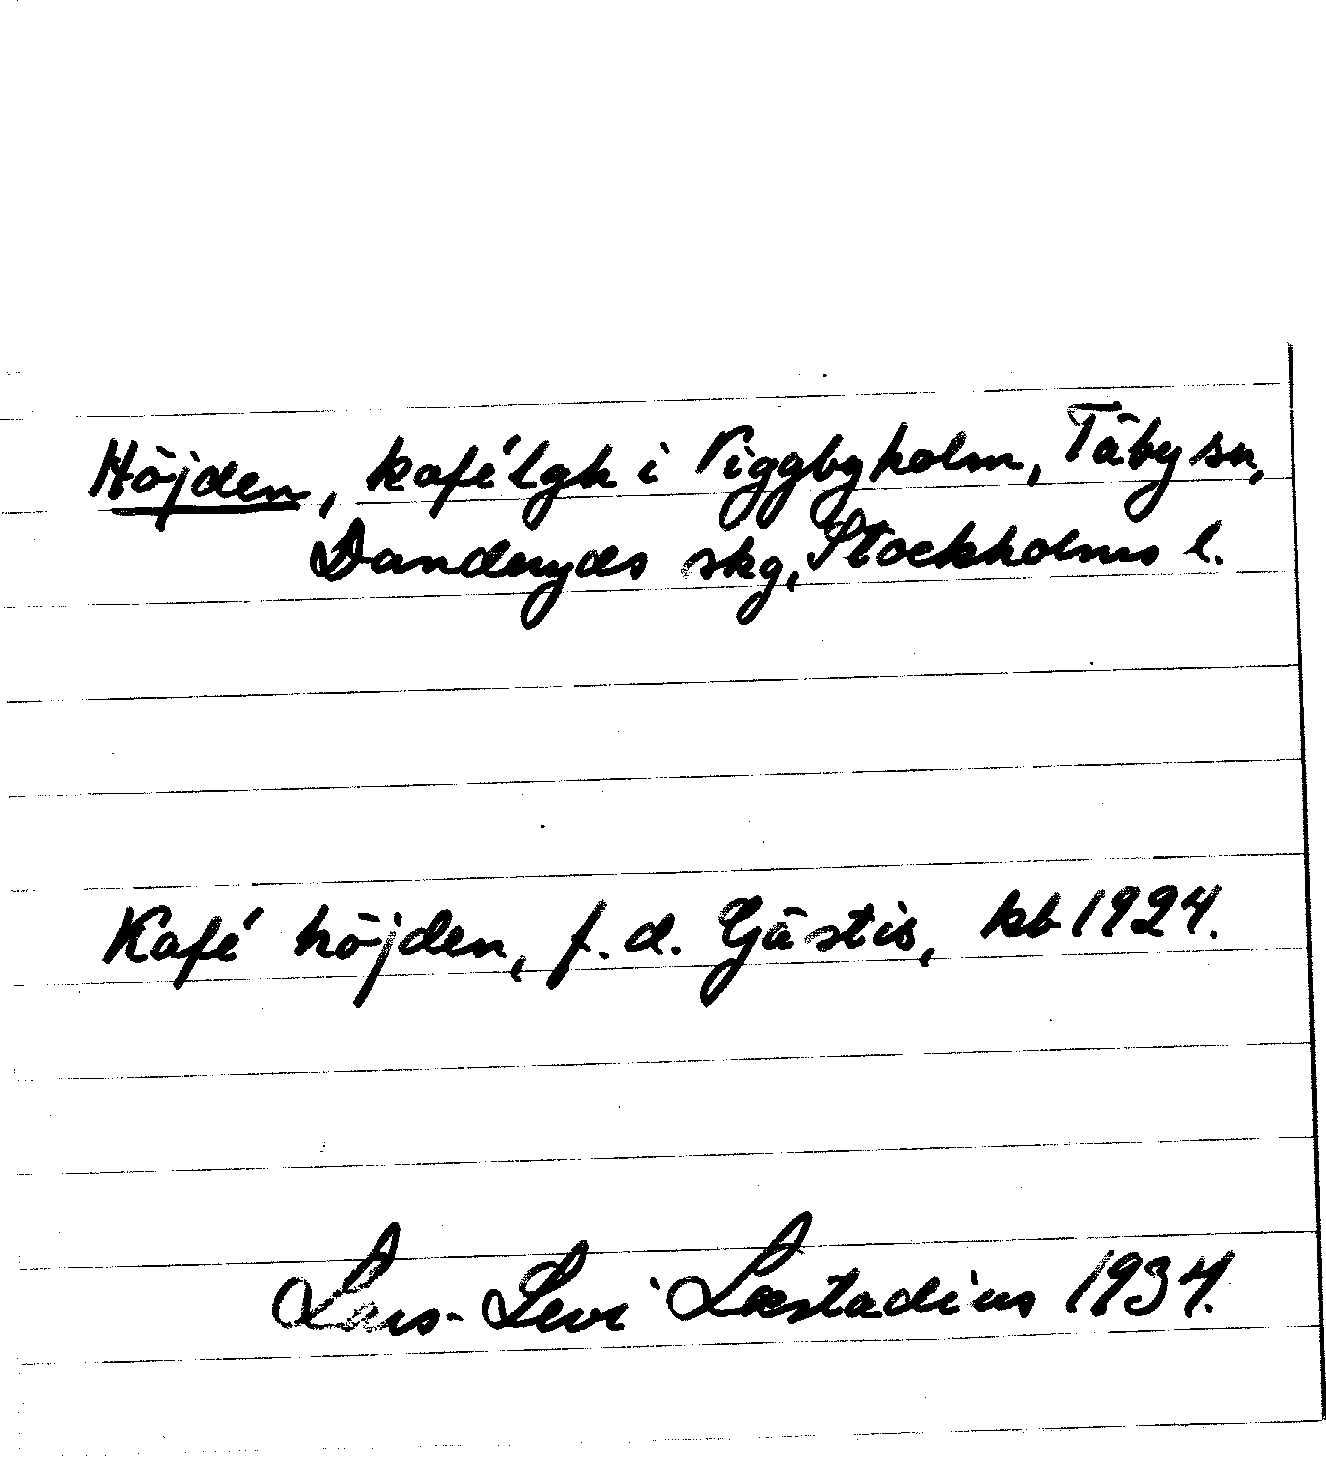 Höjden, kafé lgh i Viggbyholm, Täby sn,
Danderyds skg, Stockholms l.
Kafé höjden, f.d. Gästis, kb 1924.
Lars-Levi Læstadius 1934.